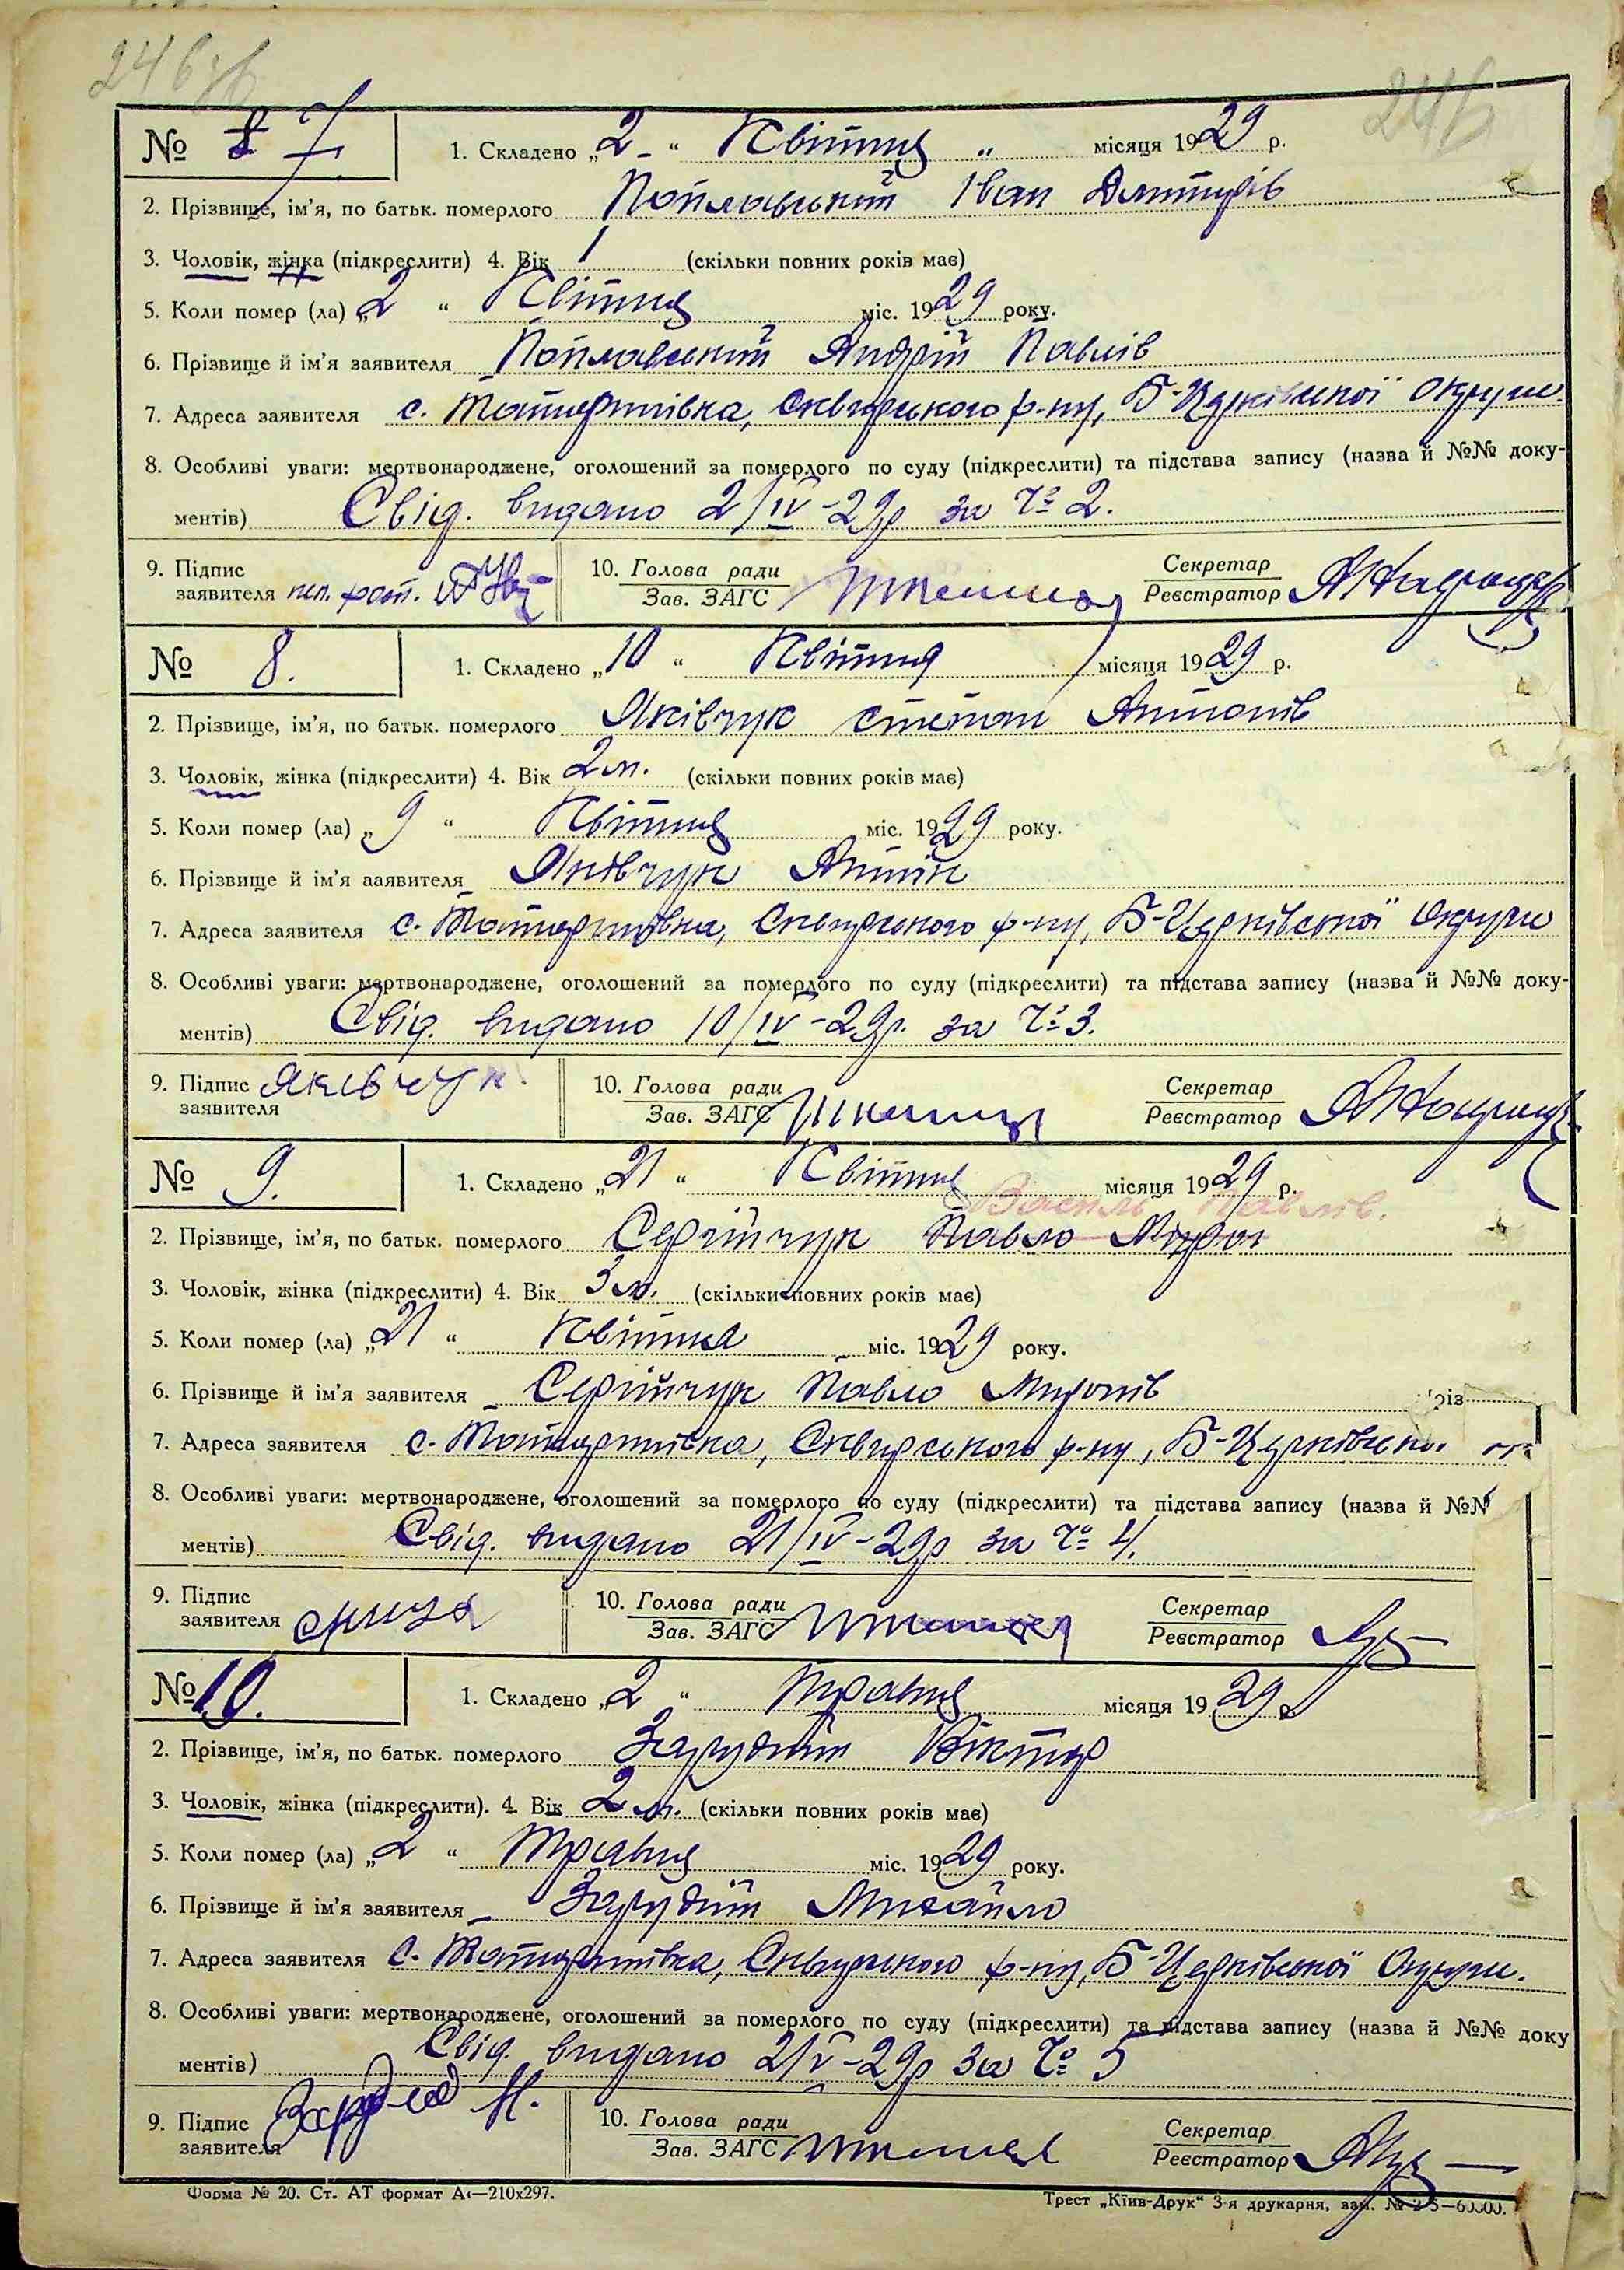 246
№ 7. 1. Складено „2“ Квітня місяця 1929 р.
2. Прізвище, ім'я, по батьк. померлого Поплавський Іван Дмитрів
3. Чоловік, жінка (підкреслити) 4. Вік 1 (скільки повних років має)
5. Коли помер (ла) „2“ Квітня міс. 1929 року.
6. Прізвище й ім'я заявителя Поплавський Андрій Павлів
7. Адреса заявителя с. Татаринівка, Сквирського р-ну, Б-Церківської Округи.
8. Особливі уваги: мертвонароджене, оголошений за померлого по суду (підкреслити) та підстава запису (назва й №№ доку-
ментів) Свід. видано 2/IV-29р за № 2.
9. Підпис 10. Голова ради Секретар
заявителя неп. Зав. ЗАГС Реєстратор
№ 8. 1. Складено „10“ Квітня місяця 1929 р.
2. Прізвище, ім'я, по батьк. померлого Яківчук Степан Антонів
3. Чоловік, жінка (підкреслити) 4. Вік 2 м. (скільки повних років має)
5. Коли помер (ла) „9“ Квітня міс. 1929 року.
6. Прізвище й ім'я аявителя Яківчук Антін
7. Адреса заявителя с. Татаринівка, Сквирського р-ну, Б-Церківської Округи
8. Особливі уваги: мертвонароджене, оголошений за померлого по суду (підкреслити) та підстава запису (назва й №№ доку-
ментів) Свід. видано 10/IV-29р. за № 3.
9. Підпис Яківчук. 10. Голова ради Секретар
заявителя Зав. ЗАГС Реєстратор
№ 9. 1. Складено „21“ Квітня місяця 1929 р.
Василь Павлів.
2. Прізвище, ім'я, по батьк. померлого Сергійчук Павло Мирон
3. Чоловік, жінка (підкреслити) 4. Вік 3 м. (скільки повних років має)
5. Коли помер (ла) „21“ Квітня міс. 1929 року.
6. Прізвище й ім'я заявителя Сергійчук Павло Миронів
7. Адреса заявителя с. Татаринівка, Сквирського р-ну, Б-Церківсько
8. Особливі уваги: мертвонароджене, оголошений за померлого по суду (підкреслити) та підстава запису (назва й №№
ментів) Свід. видано 21/IV-29р за № 4.
9. Підпис 10. Голова ради Секретар
заявителя Зав. ЗАГС Реєстратор
№ 10. 1. Складено „2“ Травня місяця 1929 р
2. Прізвище, ім'я, по батьк. померлого Зарудній Віктор
3. Чоловік, жінка (підкреслити). 4. Вік 2 м. (скільки повних років має)
5. Коли помер (ла) „2“ Травня міс. 1929 року.
6. Прізвище й ім'я заявителя Зарудній Михайло
7. Адреса заявителя с. Татаринівка, Сквирського р-ну, Б-Церківської Округи.
8. Особливі уваги: мертвонароджене, оголошений за померлого по суду (підкреслити) та підстава запису (назва й №№ доку
ментів) Свід. видано 2/V-29р за № 5
9. Підпис 10. Голова ради Секретар
заявителя Зав. ЗАГС Реєстратор
Форма № 20. Ст. АТ формат А4—210x297. Трест „Київ-Друк“ 3-я друкарня, зам. №